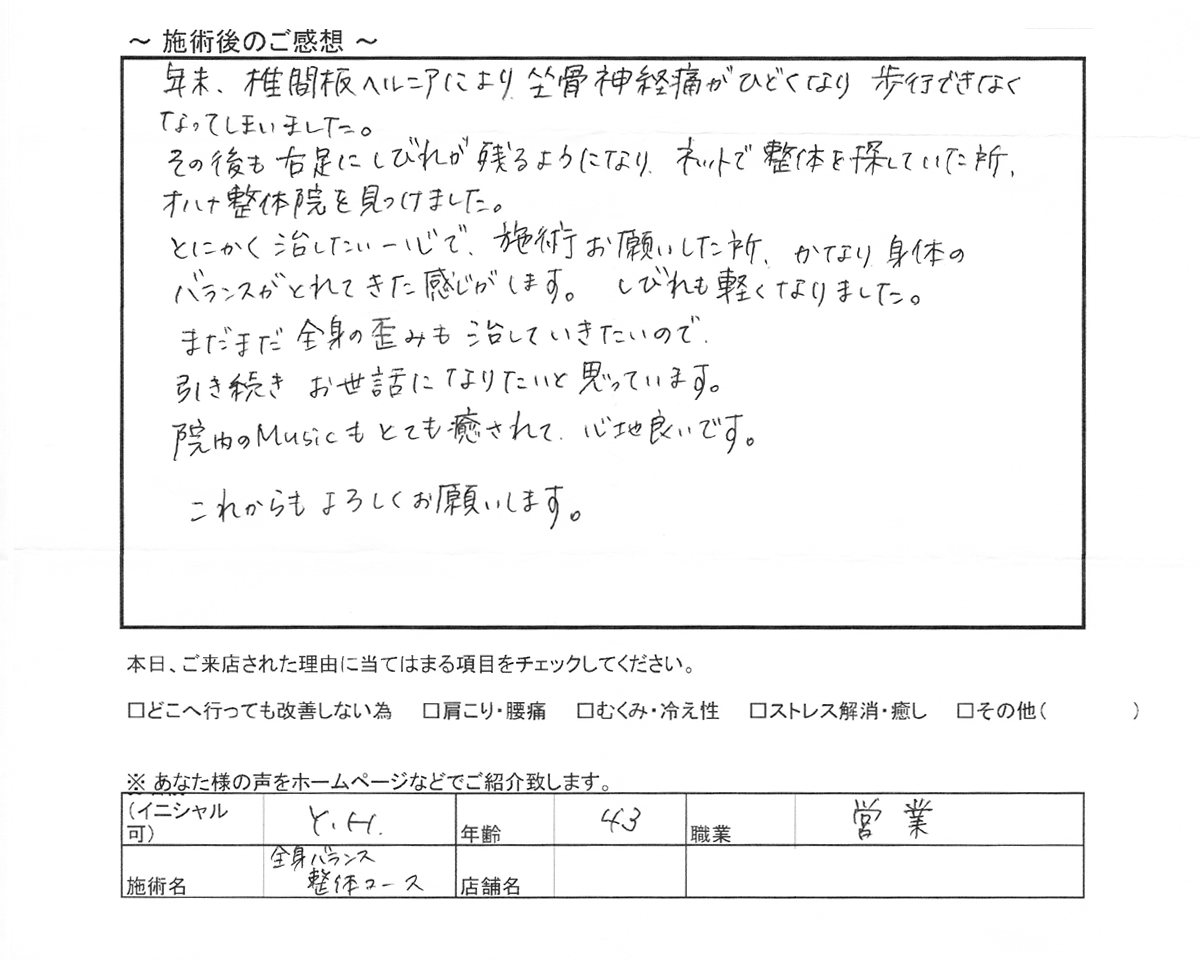 ～ 施術後のご感想 ～
年末、椎間板ヘルニアにより、坐骨神経痛がひどくなり 歩行できなく
なってしまいました。
その後も右足にしびれが残るようになり、ネットで整体を探していた所、
オハナ整体院を見つけました。
とにかく治したい一心で、施術お願いした所、かなり身体の
バランスがとれてきた感じがします。 しびれも軽くなりました。
まだまだ全身の歪みも治していきたいので、
引き続き お世話になりたいと思っています。
院内のMusicもとても癒されて、心地良いです。
これからもよろしくお願いします。
本日、ご来店された理由に当てはまる項目をチェックしてください。
□どこへ行っても改善しない為 □肩こり・腰痛 □むくみ・冷え性 □ストレス解消・癒し □その他( )
※ あなた様の声をホームページなどでご紹介致します。
(イニシャル可) Y.H. 年齢 43 職業 営業
施術名 全身バランス整体コース 店舗名